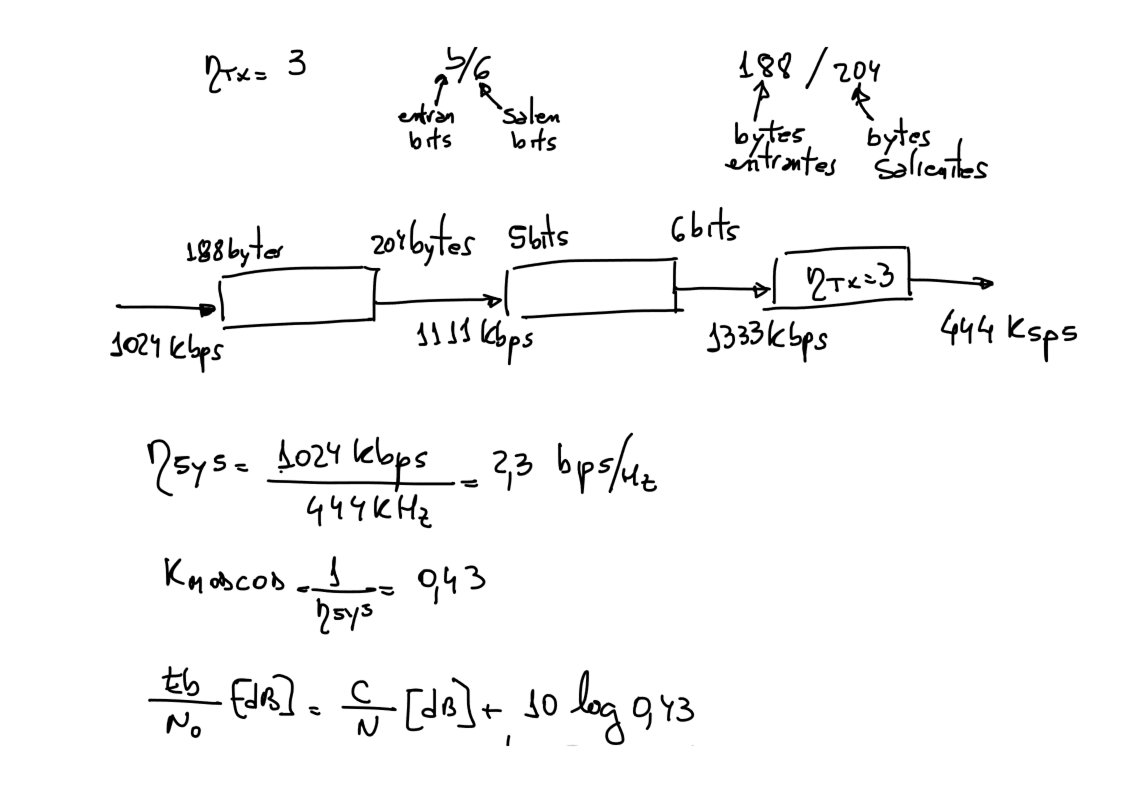 ηTx = 3
5/6
188 / 204
entran bits
salen bits
bytes entrantes
bytes salientes
188 bytes
204 bytes
5 bits
6 bits
ηTx = 3
1024 kbps
1111 kbps
1333 kbps
444 Ksps
ηsys = 1024 kbps / 444 KHz = 2,3 bps/Hz
Kmodcod = 1 / ηsys = 0,43
Eb/No [dB] = C/N [dB] + 10 log 0,43